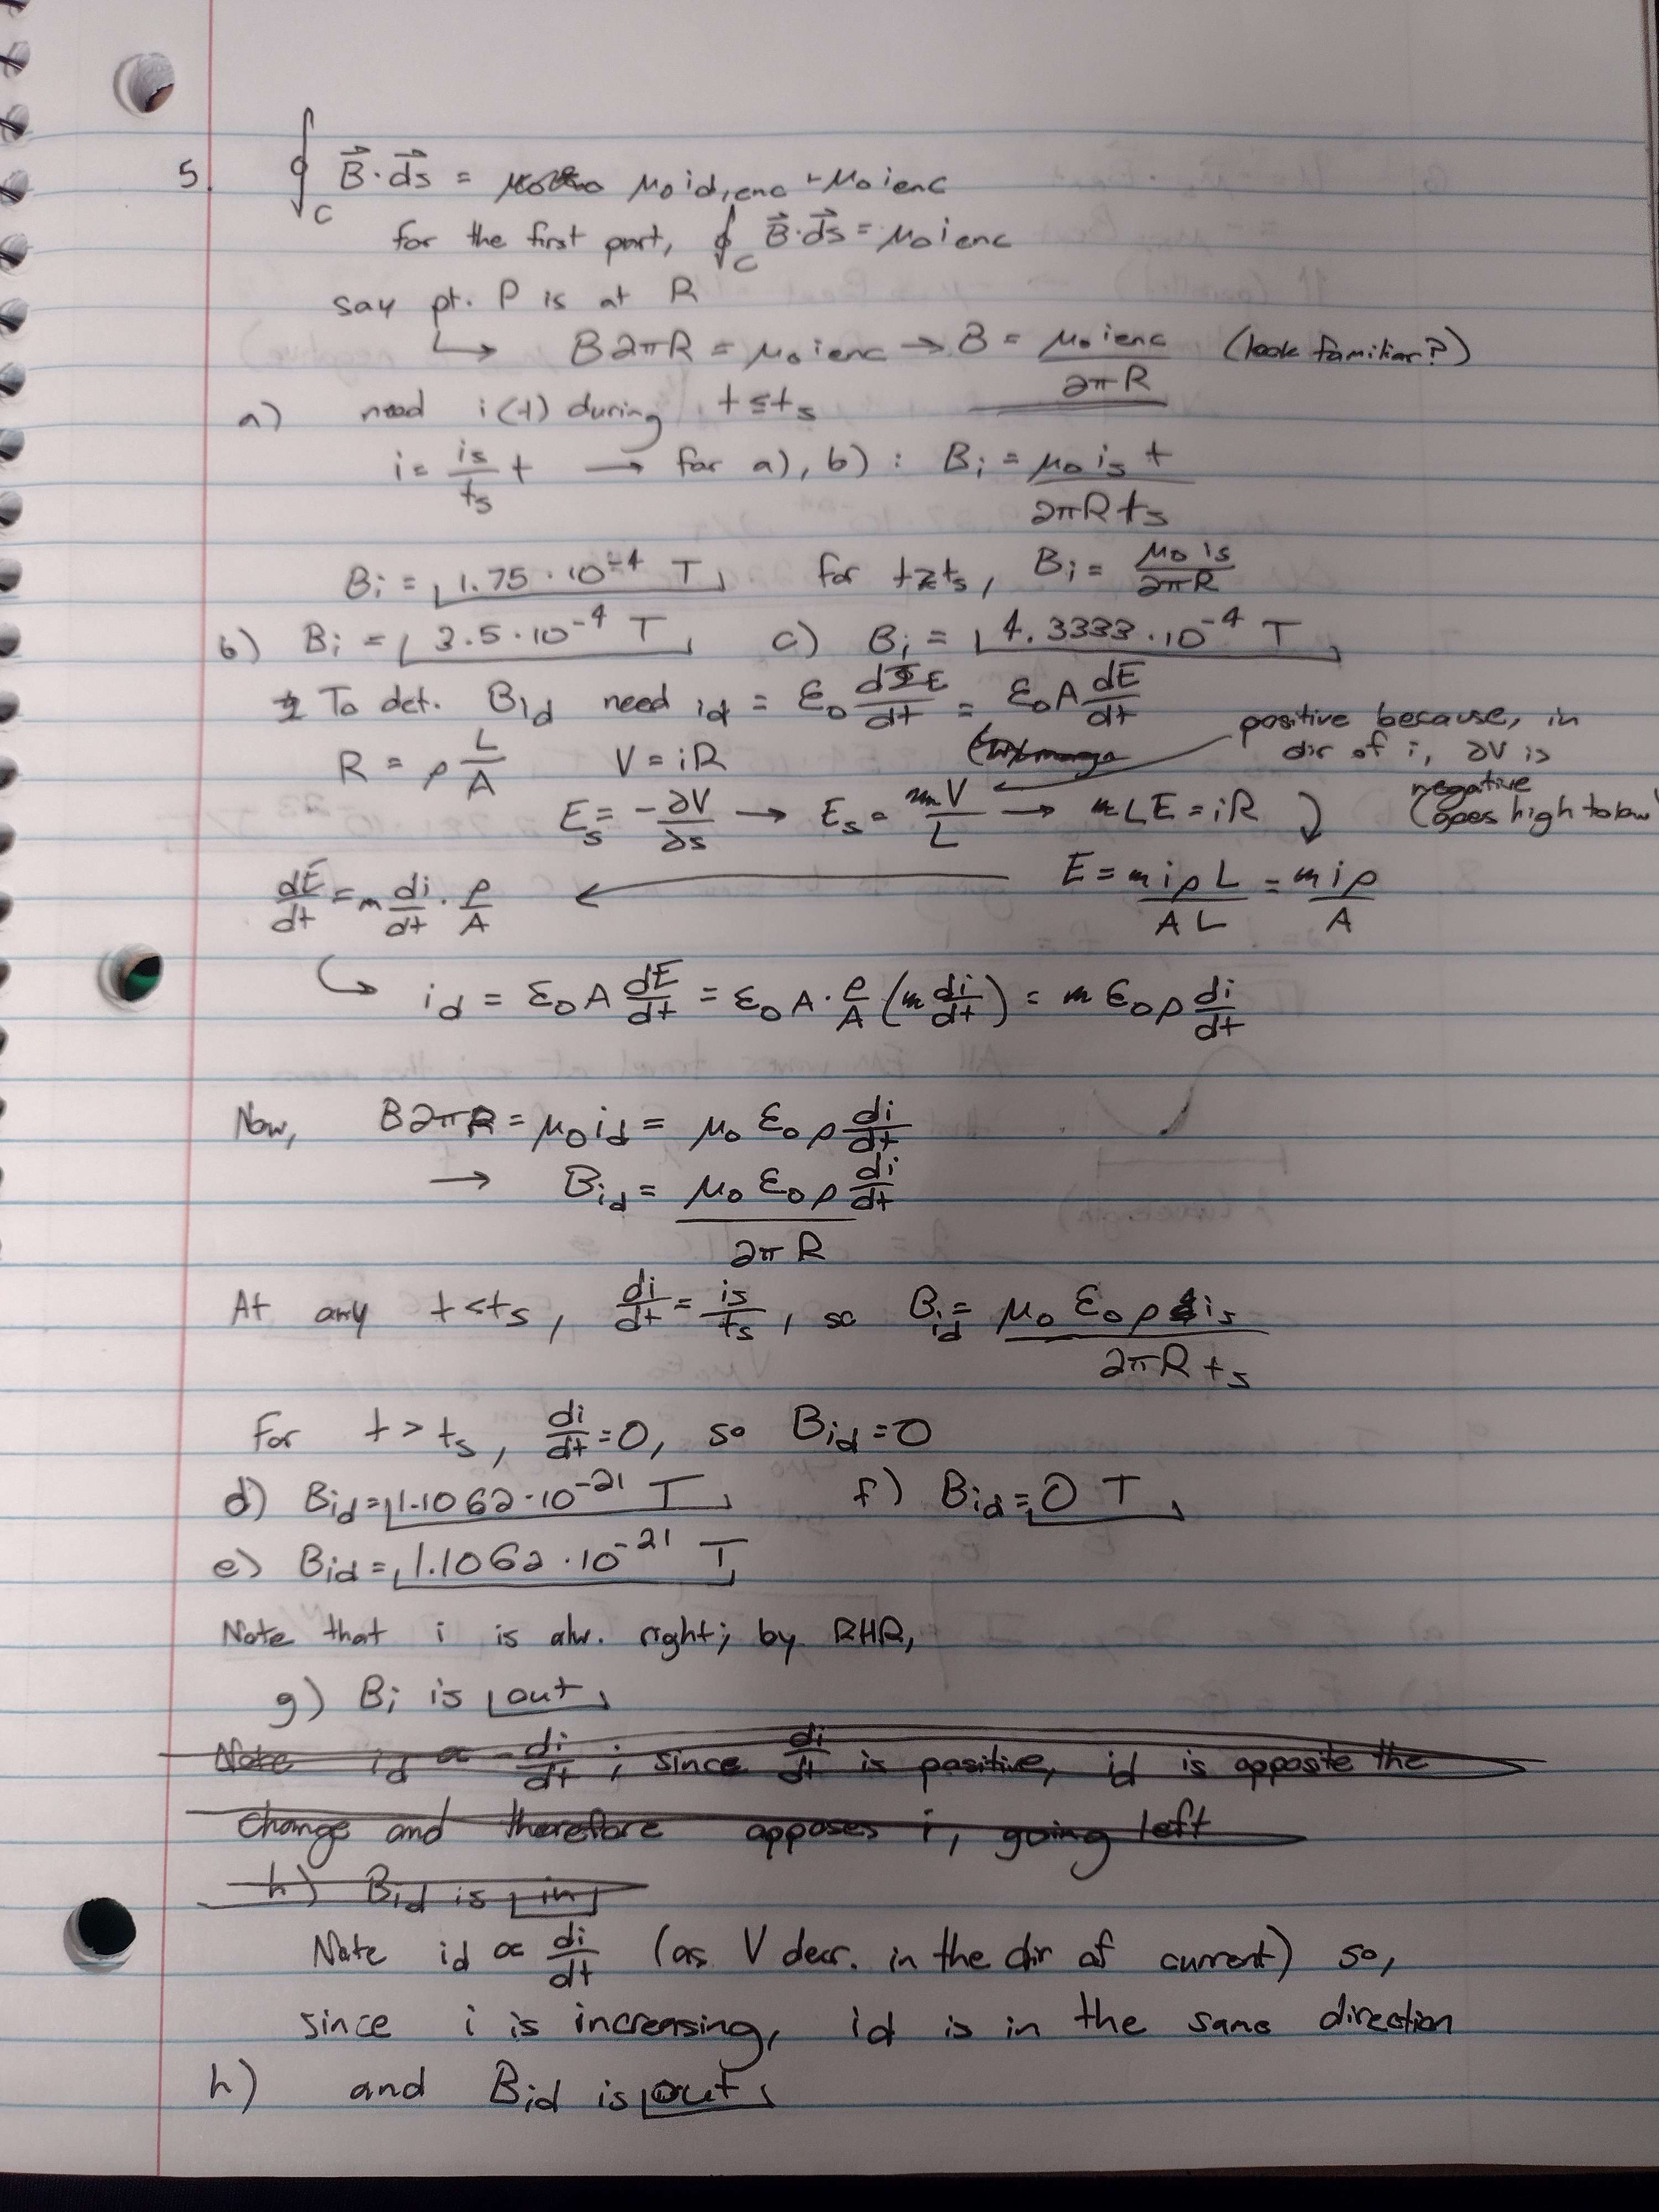 5. ∮_C B⃗·ds⃗ = μ₀ i_d,enc + μ₀ i_enc
for the first part, ∮_C B⃗·ds⃗ = μ₀ i_enc
say pt. P is at R
↳ B2πR = μ₀ i_enc → B = μ₀ i_enc / 2πR (look familiar?)
a) need i(t) during t ≤ t_s
i = (i_s/t_s) t → for a), b) : B_i = μ₀ i_s t / 2πR t_s
B_i = 1.75 · 10⁻⁴ T for t ≥ t_s, B_i = μ₀ i_s / 2πR
b) B_i = 3.5 · 10⁻⁴ T c) B_i = 4.3333 · 10⁻⁴ T
To det. B_id need i_d = ε₀ dΦE/dt = ε₀ A dE/dt
positive because, in dir of i, ∂V is negative (goes high to low)
R = ρ L/A V = iR
E_s = -∂V/∂s → E_s = V/L → LE = iR
E = iρL / AL = iρ / A
dE/dt = di/dt · ρ/A ←
↳ i_d = ε₀ A dE/dt = ε₀ A · ρ/A (di/dt) = ε₀ ρ di/dt
Now, B2πR = μ₀ i_d = μ₀ ε₀ ρ di/dt
→ B_id = μ₀ ε₀ ρ di/dt / 2πR
At any t < t_s, di/dt = i_s/t_s, so B_id = μ₀ ε₀ ρ i_s / 2πR t_s
For t > t_s, di/dt = 0, so B_id = 0
d) B_id = 1.1062 · 10⁻²¹ T f) B_id = 0 T
e) B_id = 1.1062 · 10⁻²¹ T
Note that i is alw. right; by RHR,
g) B_i is out
Note i_d ∝ -di/dt ; since di/dt is positive, id is opposite the
change and therefore opposes i, going left
h) B_id is in
Note id ∝ di/dt (as V decr. in the dir of current) so,
since i is increasing, id is in the same direction
h) and B_id is out